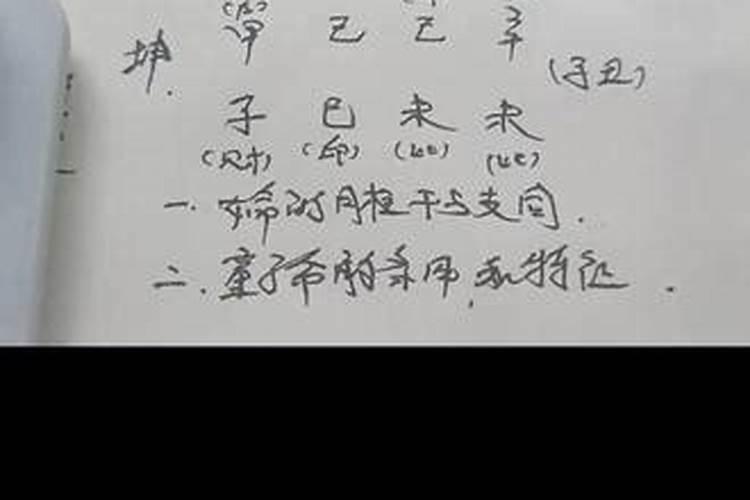 甲 己 己 辛
坤. (子丑)
子 巳 未 未
(财) (印) (比) (比)
一. 女命的月柱干与支同.
二. 童子命的条件,和特征.